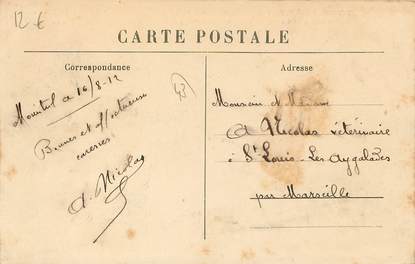 12 €
CARTE POSTALE
Correspondance
Adresse
a 16/8-12
Bonnes et affectueuses
caresses
A. Nicolas
Monsieur et Madame
A Nicolas vétérinaire
à St Louis-Les Aygalades
par Marseille